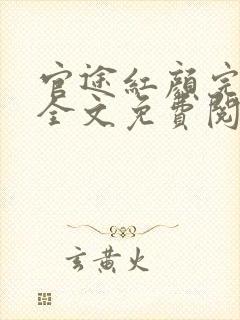 官途紅顏完
全文免費閱
玄黃火